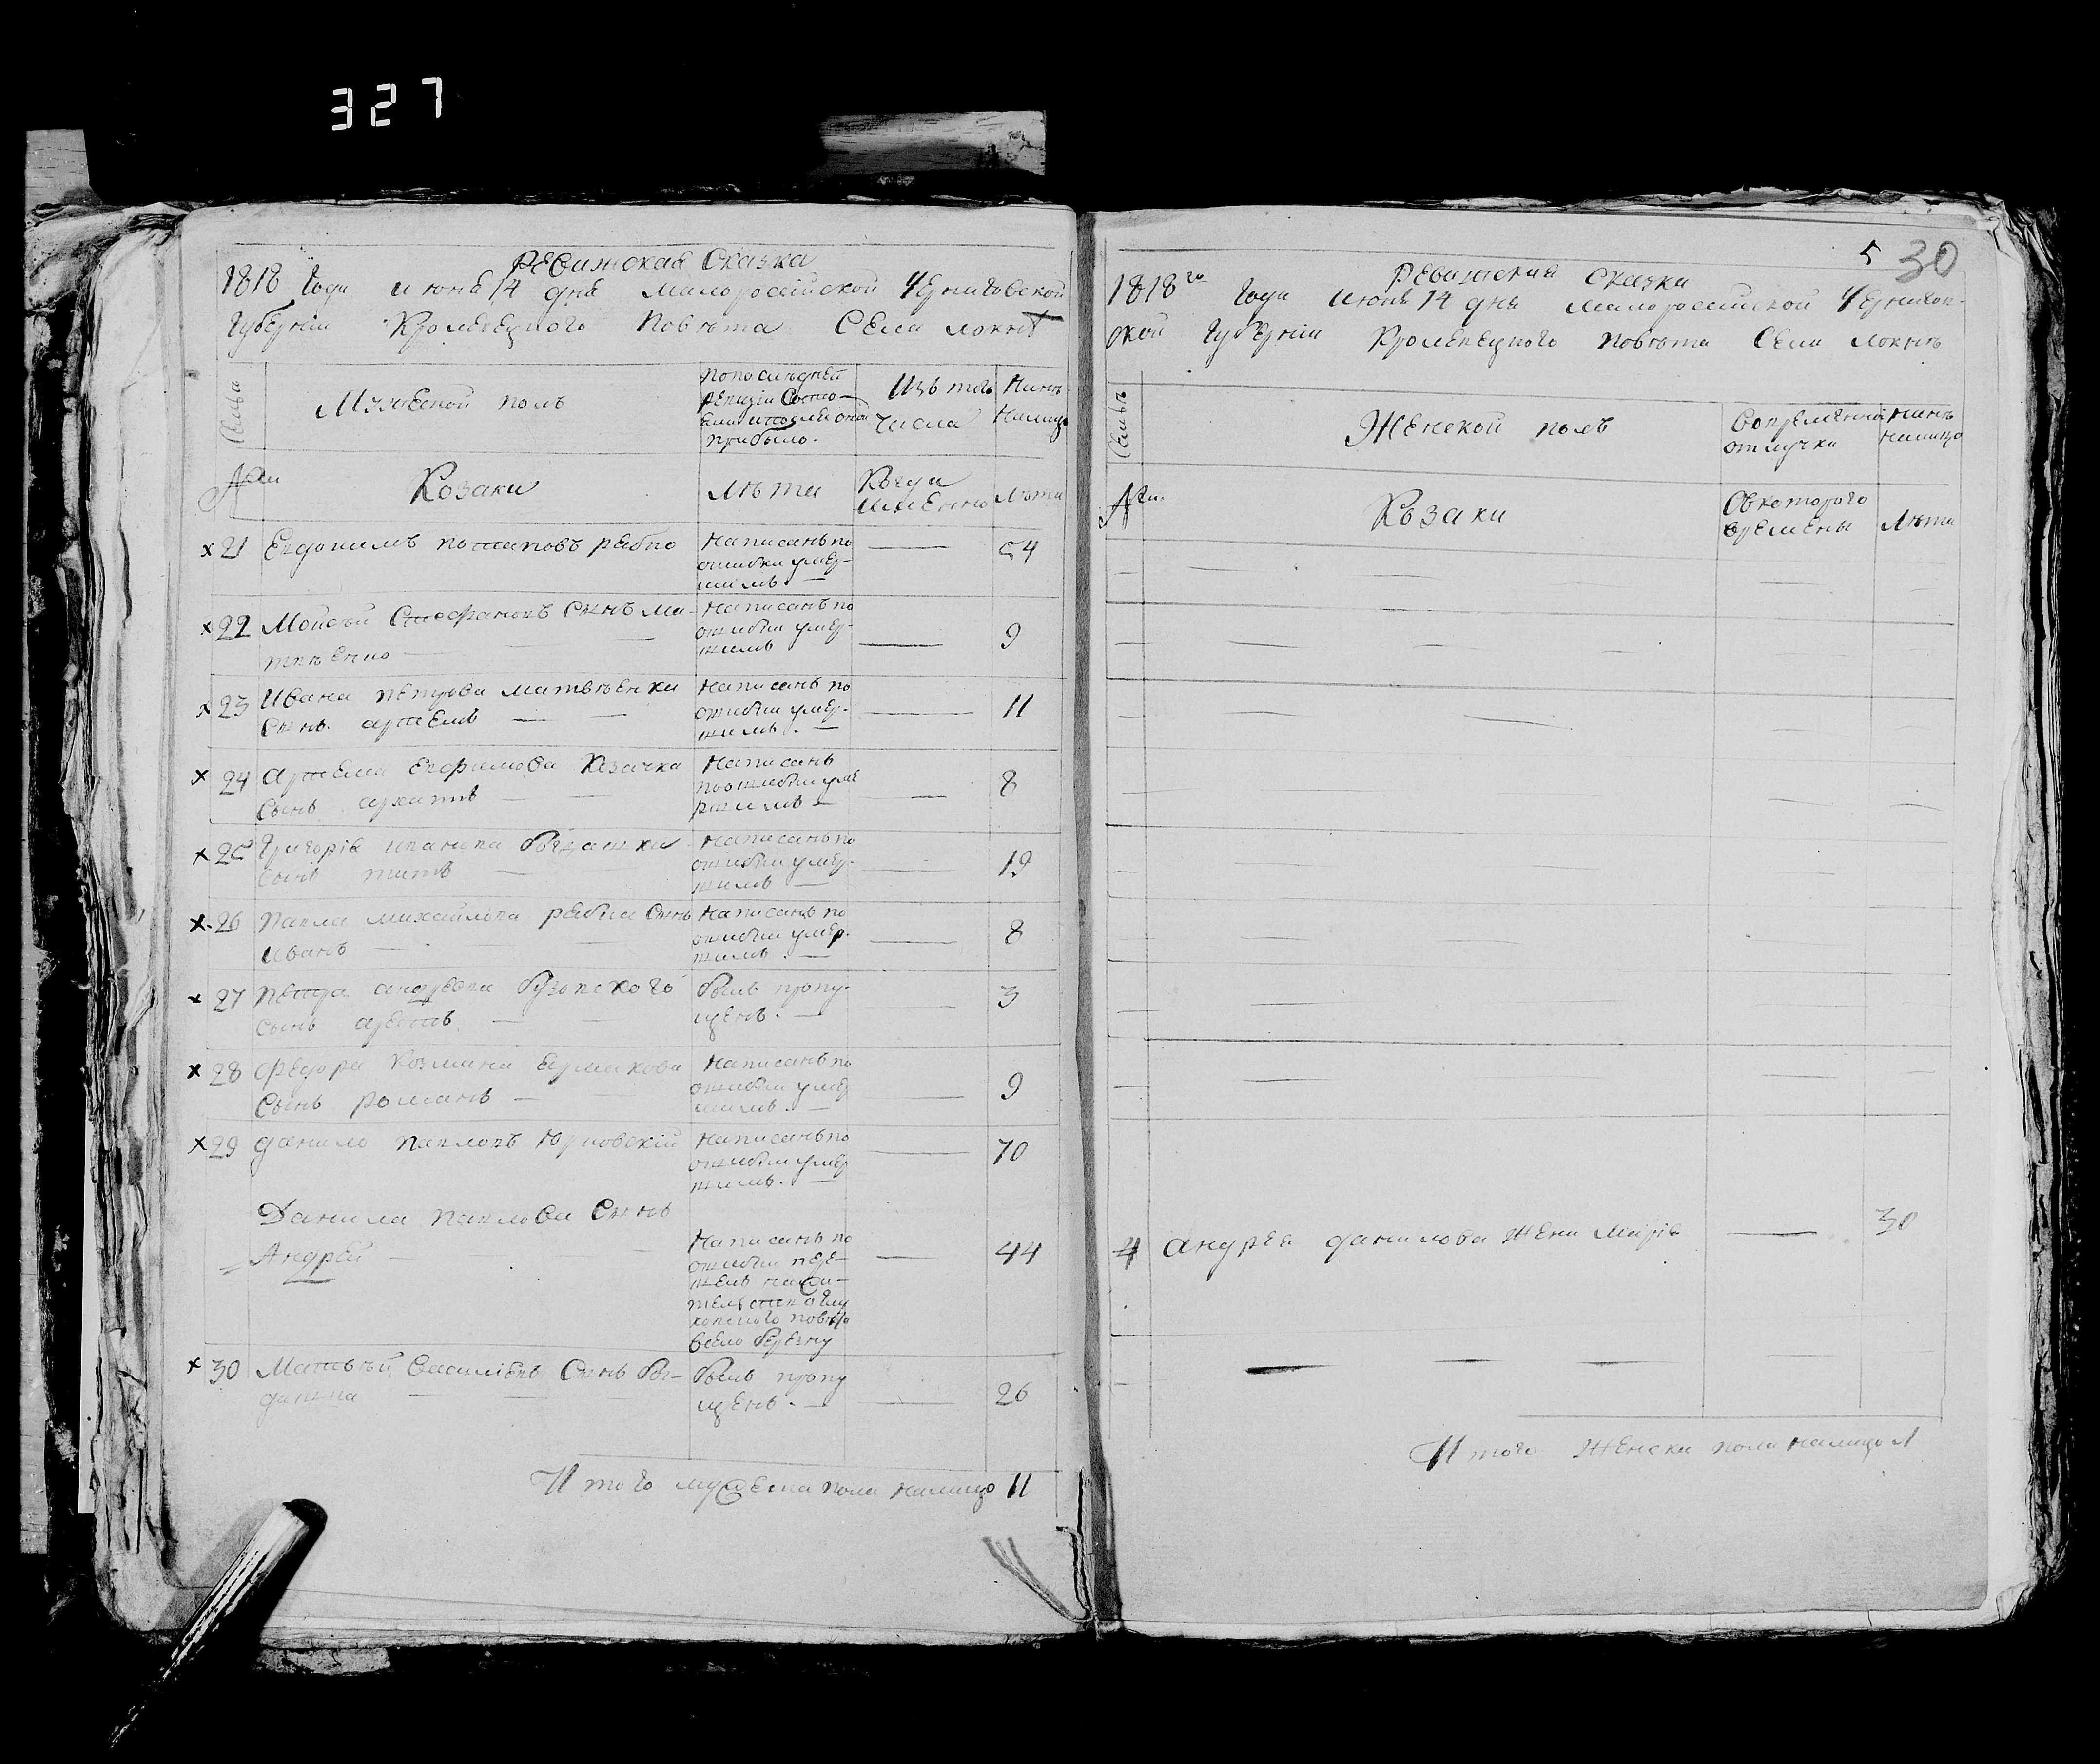 327
Ревижская Сказка
1818 Года июня 14 дня Малоросійской Черниговской
Губерніи Кролевецкого Повѣта Села Локнѣ
Семьи
Мужеской полъ
По последней
ревизіи Состо-
яли и после оной
прибыло.
Изъ того
Числа
Нынѣ
Налицо
№
Козаки
Лѣта
Когда
Имѣнно
Лѣта
×21 Евдокимъ Потаповъ Рябко
Написанъ по
ошибки умер-
шимъ. —
54
×22 Мойсѣй Стефановъ Сынъ Ма-
твѣенко
Написанъ по
ошибки умер-
шимъ
9
×23 Ивана Петрова Матвѣенки
Сынъ Артемъ
Написанъ по
ошибки умер-
шимъ. —
11
×24 Артема Евфимова Козачка
Сынъ Архипъ
Написанъ
по ошибки уме
ршимъ —
8
×25 Григорія Иванова Богдашки
Сынъ Титъ
Написанъ по
ошибки умер-
шимъ —
19
×26 Павла Михайлова Рябка Сынъ
Иванъ
Написанъ по
ошибки умер-
шимъ. —
8
×27 Петра Андрѣева Бузовского
Сынъ
былъ пропу-
щенъ. —
3
×28 Федора Козмина Ермакова
Сынъ Романъ
Написанъ по
ошибки умер
шимъ. —
9
×29 Данило Павловъ Юрковскій
Написанъ по
ошибки умер
шимъ. —
70
Данила Павлова Сынъ
Андрей
Написанъ по
ошибки пере-
шелъ на жи-
телство Глу
ховского повѣта
всело Березну
44
×30 Матвѣй Василіевъ Сынъ Бог-
дашка
былъ пропу
щенъ. —
26
Итого мужеска пола налицо 11
5 30
Ревижская Сказка
1818го Года Июня 14 дня Малоросcийской Черников-
ской Губерніи Кролевецкого Повѣта Села Локнѣ
Семьи
Женской полъ
Вовременной
отлучки
Нынѣ
налицо
№
Козаки
Съ которого
времены
Лѣта
4 Андрея Данилова Жена Марія 30
Итого Женска пола налицо 1